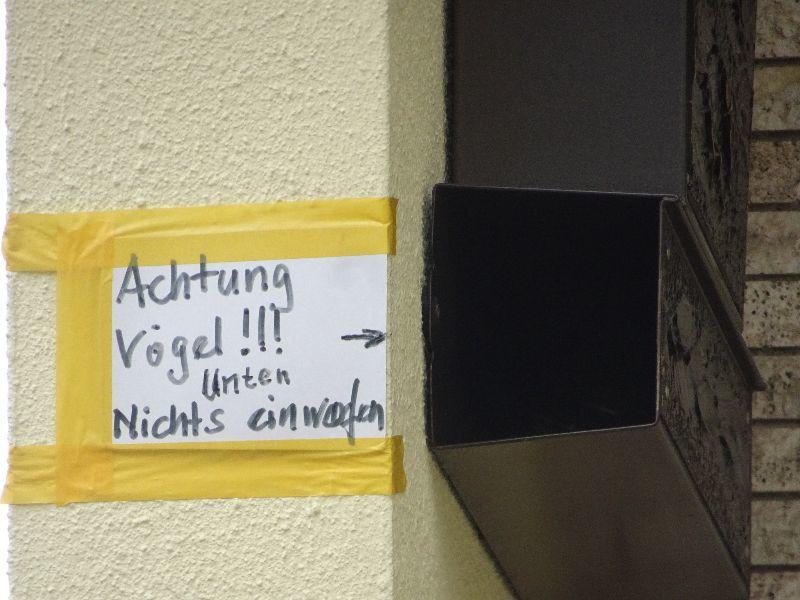 Achtung
Vögel!!!
Unten
Nichts einwerfen